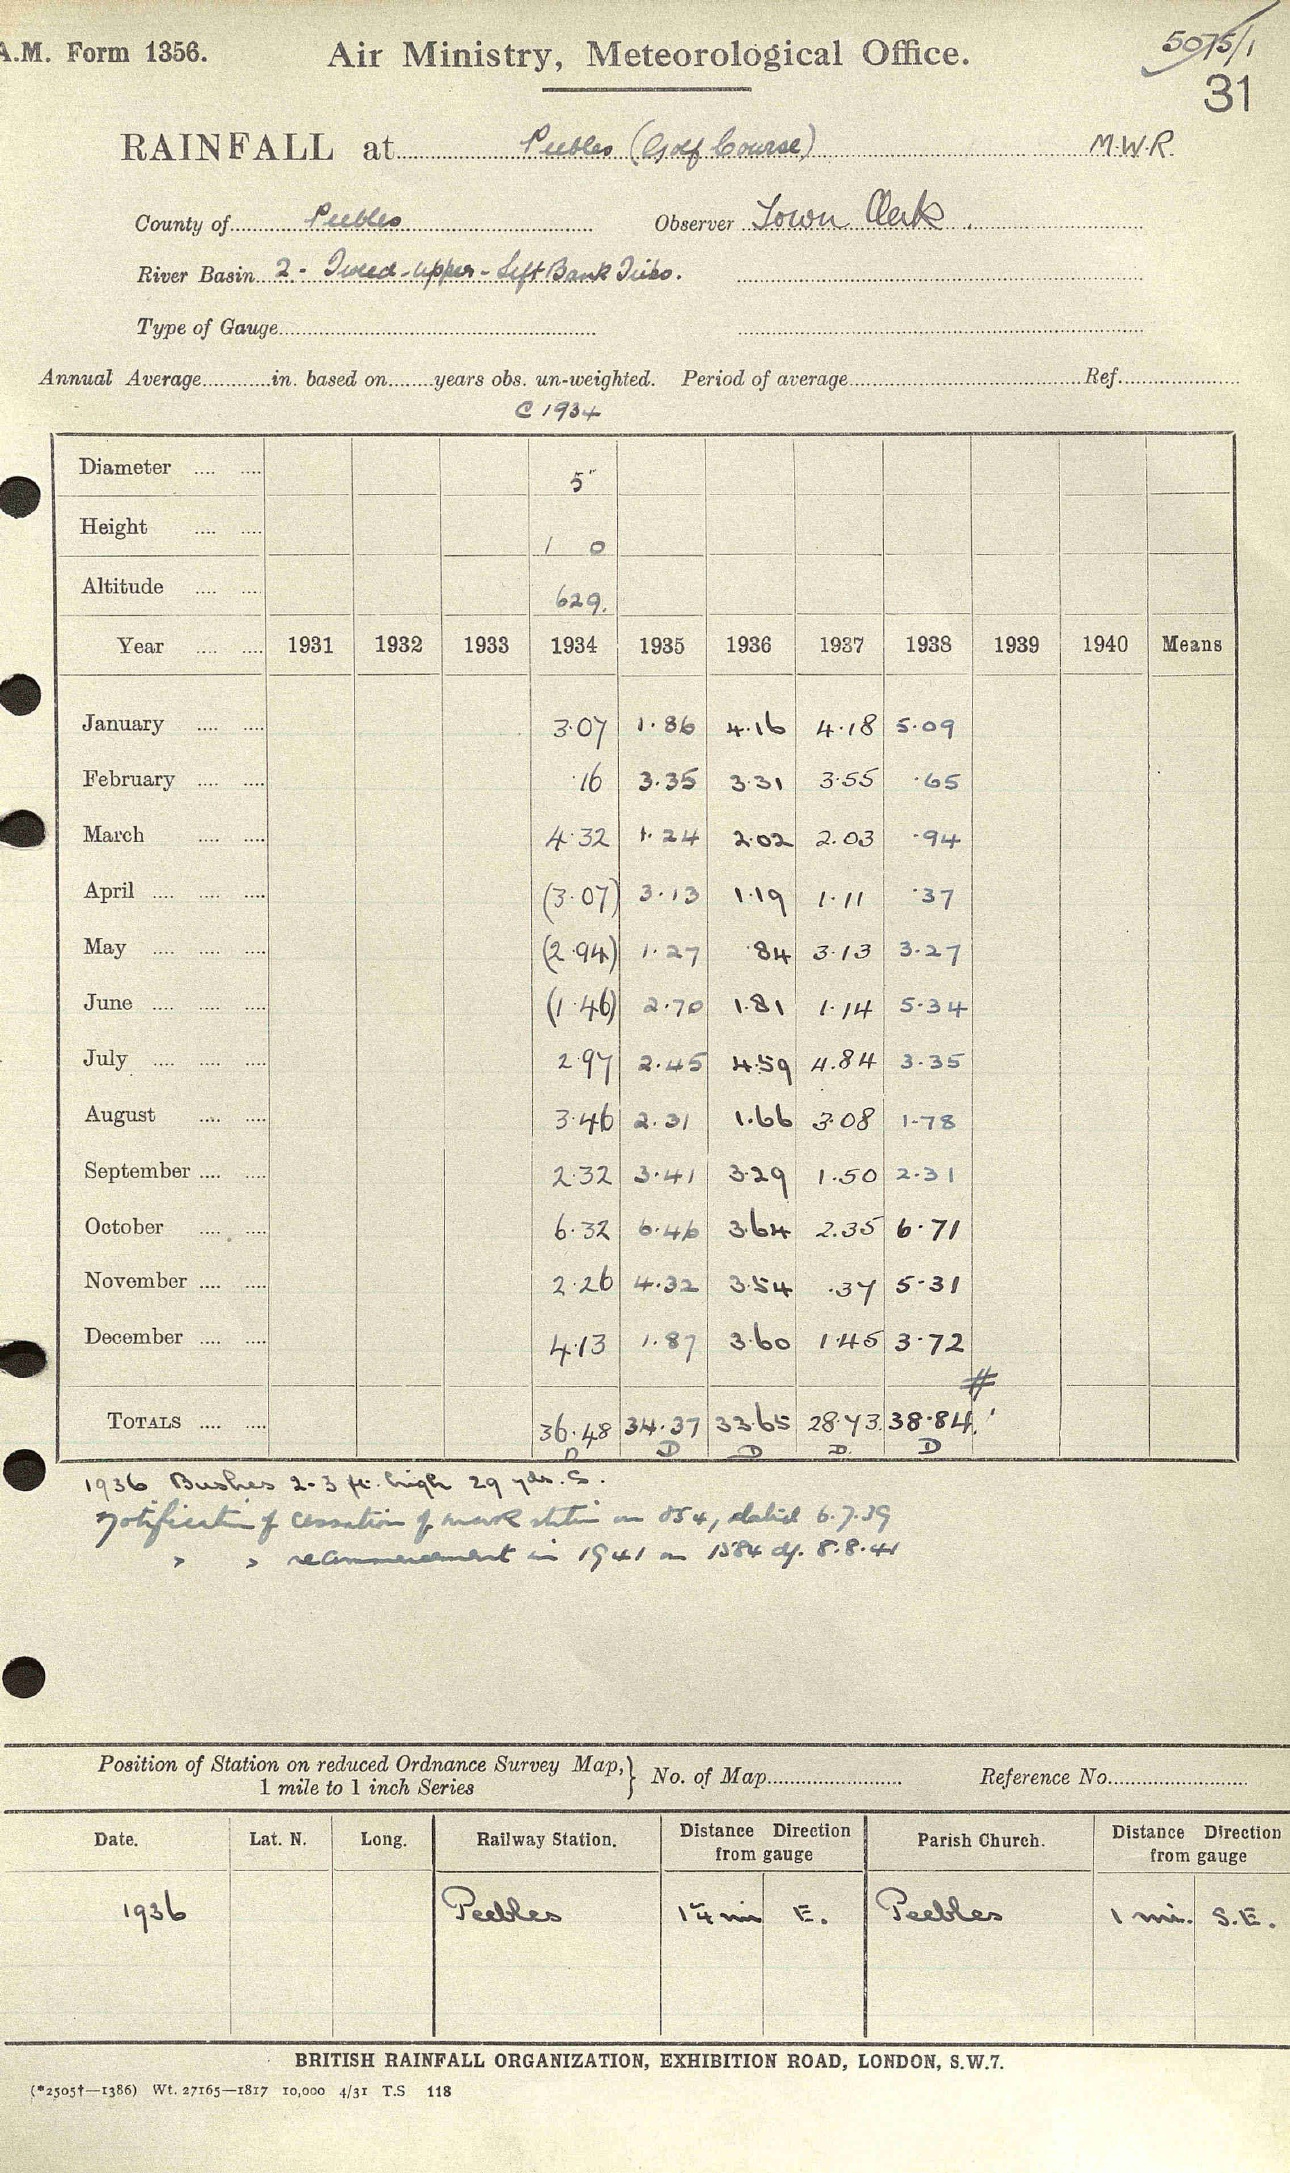 A.M. Form 1356.
Air Ministry, Meteorological Office.
5075/1
31
RAINFALL at Peebles (Golf Course) M.W.R.
County of Peebles Observer Town Clerk
River Basin 2 - Tweed - upper - Left Bank Tribs.
Type of Gauge
Annual Average in. based on years obs. un-weighted. Period of average Ref.
C 1934
Diameter 5"
Height 1 0
Altitude 629.
Year 1931 1932 1933 1934 1935 1936 1937 1938 1939 1940 Means
January 3.07 1.86 4.16 4.18 5.09
February .16 3.35 3.31 3.55 .65
March 4.32 1.24 2.02 2.03 .94
April (3.07) 3.13 1.19 1.11 .37
May (2.94) 1.27 .84 3.13 3.27
June (1.46) 2.70 1.81 1.14 5.34
July 2.97 2.45 4.59 4.84 3.35
August 3.46 2.31 1.66 3.08 1.78
September 2.32 3.41 3.29 1.50 2.31
October 6.32 6.46 3.64 2.35 6.71
November 2.26 4.32 3.54 .37 5.31
December 4.13 1.87 3.60 1.45 3.72
#
TOTALS 36.48 34.37 33.65 28.73 38.84
D D D D D
1936 Bushes 2-3 ft. high 29 yds. S.
Notification of cessation of work station on 854, dated 6.7.39
" " recommencement in 1941 on 1584 of 8.8.41
Position of Station on reduced Ordnance Survey Map, 1 mile to 1 inch Series } No. of Map Reference No.
Date. Lat. N. Long. Railway Station. Distance Direction from gauge Parish Church. Distance Direction from gauge
1936 Peebles 1¼ mi E. Peebles 1 mi. S.E.
BRITISH RAINFALL ORGANIZATION, EXHIBITION ROAD, LONDON, S.W.7.
(*2505†—1386) Wt. 27165—1817 10,000 4/31 T.S 118